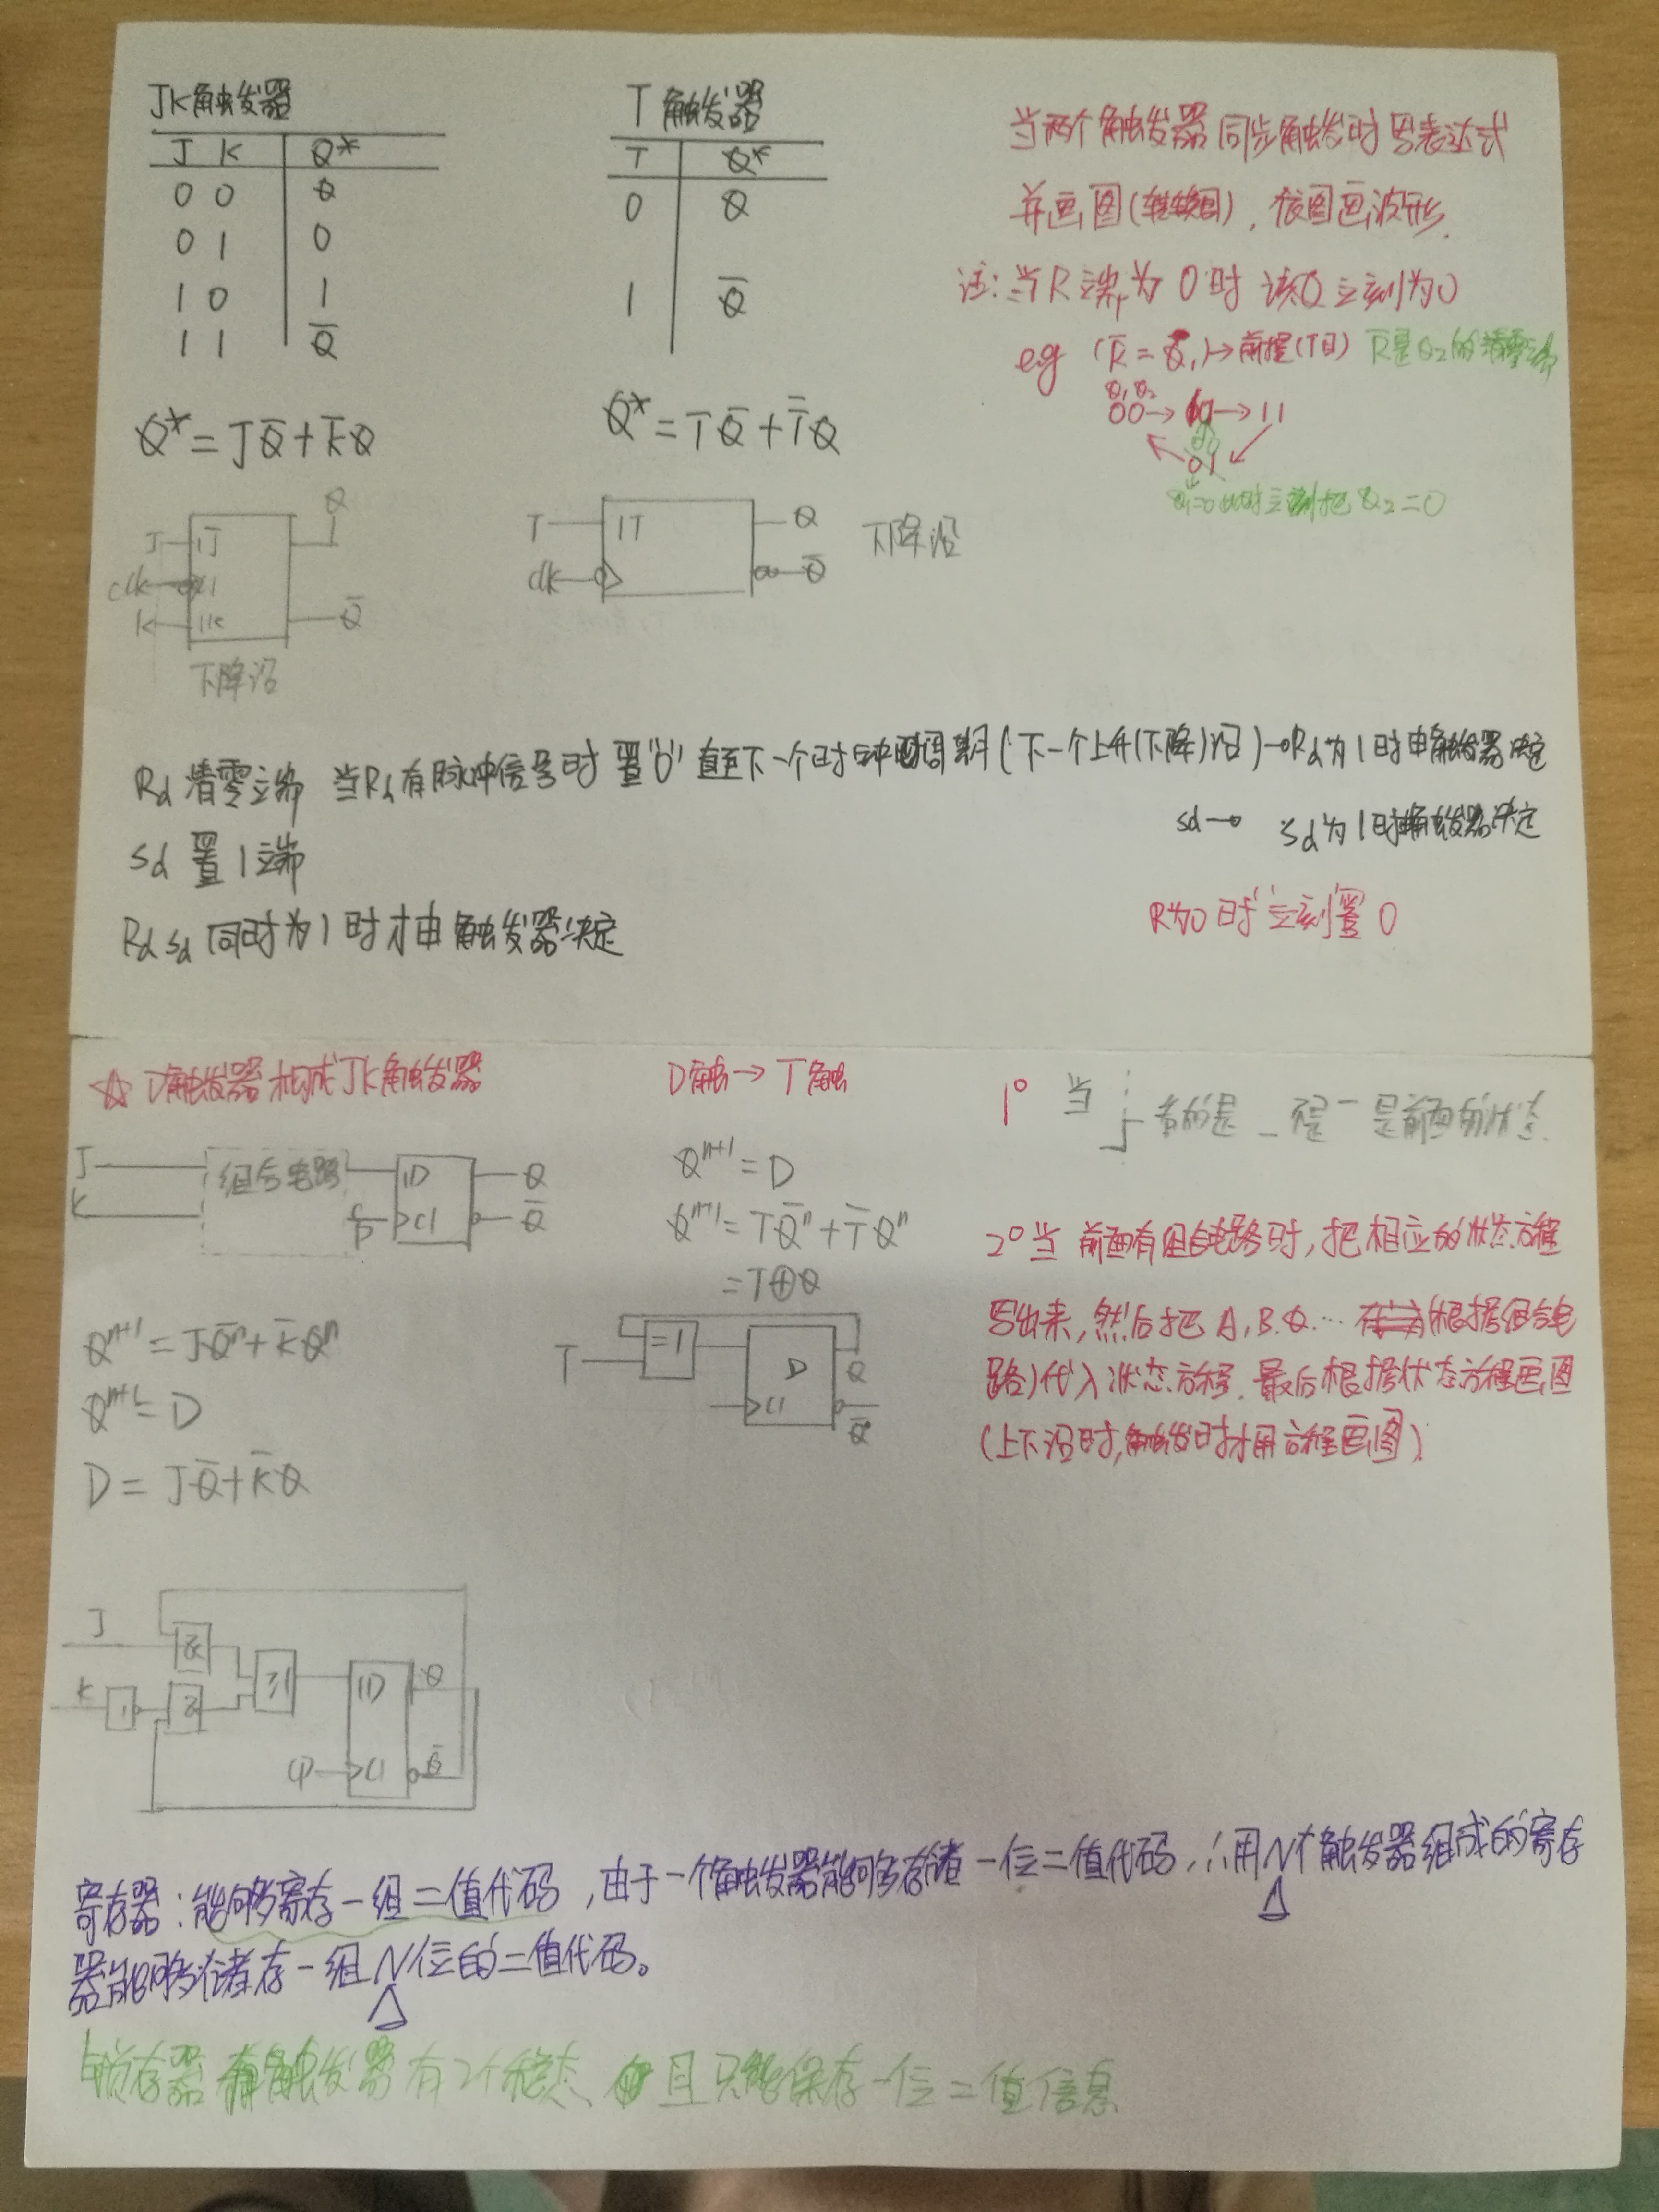 JK触发器
J K Q*
0 0 Q
0 1 0
1 0 1
1 1 Q̅
Q*=JQ̅+K̅Q
J 1J Q
clk C1
K 1K Q̅
下降沿
T触发器
T Q*
0 Q
1 Q̅
Q*=TQ̅+T̅Q
T 1T Q
clk Q̅
下降沿
当两个触发器同步触发时写表达式
并画图(转换图),依图画波形.
注:当R端为0时 该Q立刻为0
eg (R̅=Q̅₁)→前提(T目) R̅是Q₂的清零端
Q₁Q₂
00→10→11
01
Q₁=0此时立刻把Q₂=0
Rd 清零端 当Rd有脉冲信号时 置'0'直至下一个时钟周期(下一个上升(下降)沿)→Rd为1时由触发器决定
Sd 置1端
Sd→ Sd为1时触发器决定
Rd Sd 同时为1时才由触发器决定
R为0时立刻置0
☆ D触发器构成JK触发器
J 组合电路 1D Q
K cp C1 Q̅
Qⁿ⁺¹=JQ̅ⁿ+K̅Qⁿ
Qⁿ⁺¹=D
D=JQ̅+K̅Q
J & ≥1 1D Q
K 1 &
CP C1 Q̅
D触→T触
Qⁿ⁺¹=D
Qⁿ⁺¹=TQ̅ⁿ+T̅Qⁿ
=T⊕Q
T =1 D Q
C1 Q̅
1° 当 看的是 是前面的状态
2°当前面有组合电路时,把相应的状态方程
写出来,然后把A,B,Q...(根据组合电
路)代入状态方程,最后根据状态方程画图
(上下沿时,触发时才用方程画图)
寄存器:能够寄存一组二值代码,由于一个触发器能够存储一位二值代码,∴用N个触发器组成的寄存
器能够储存一组N位的二值代码。
锁存器 触发器有2个稳态、且只能保存一位二值信息